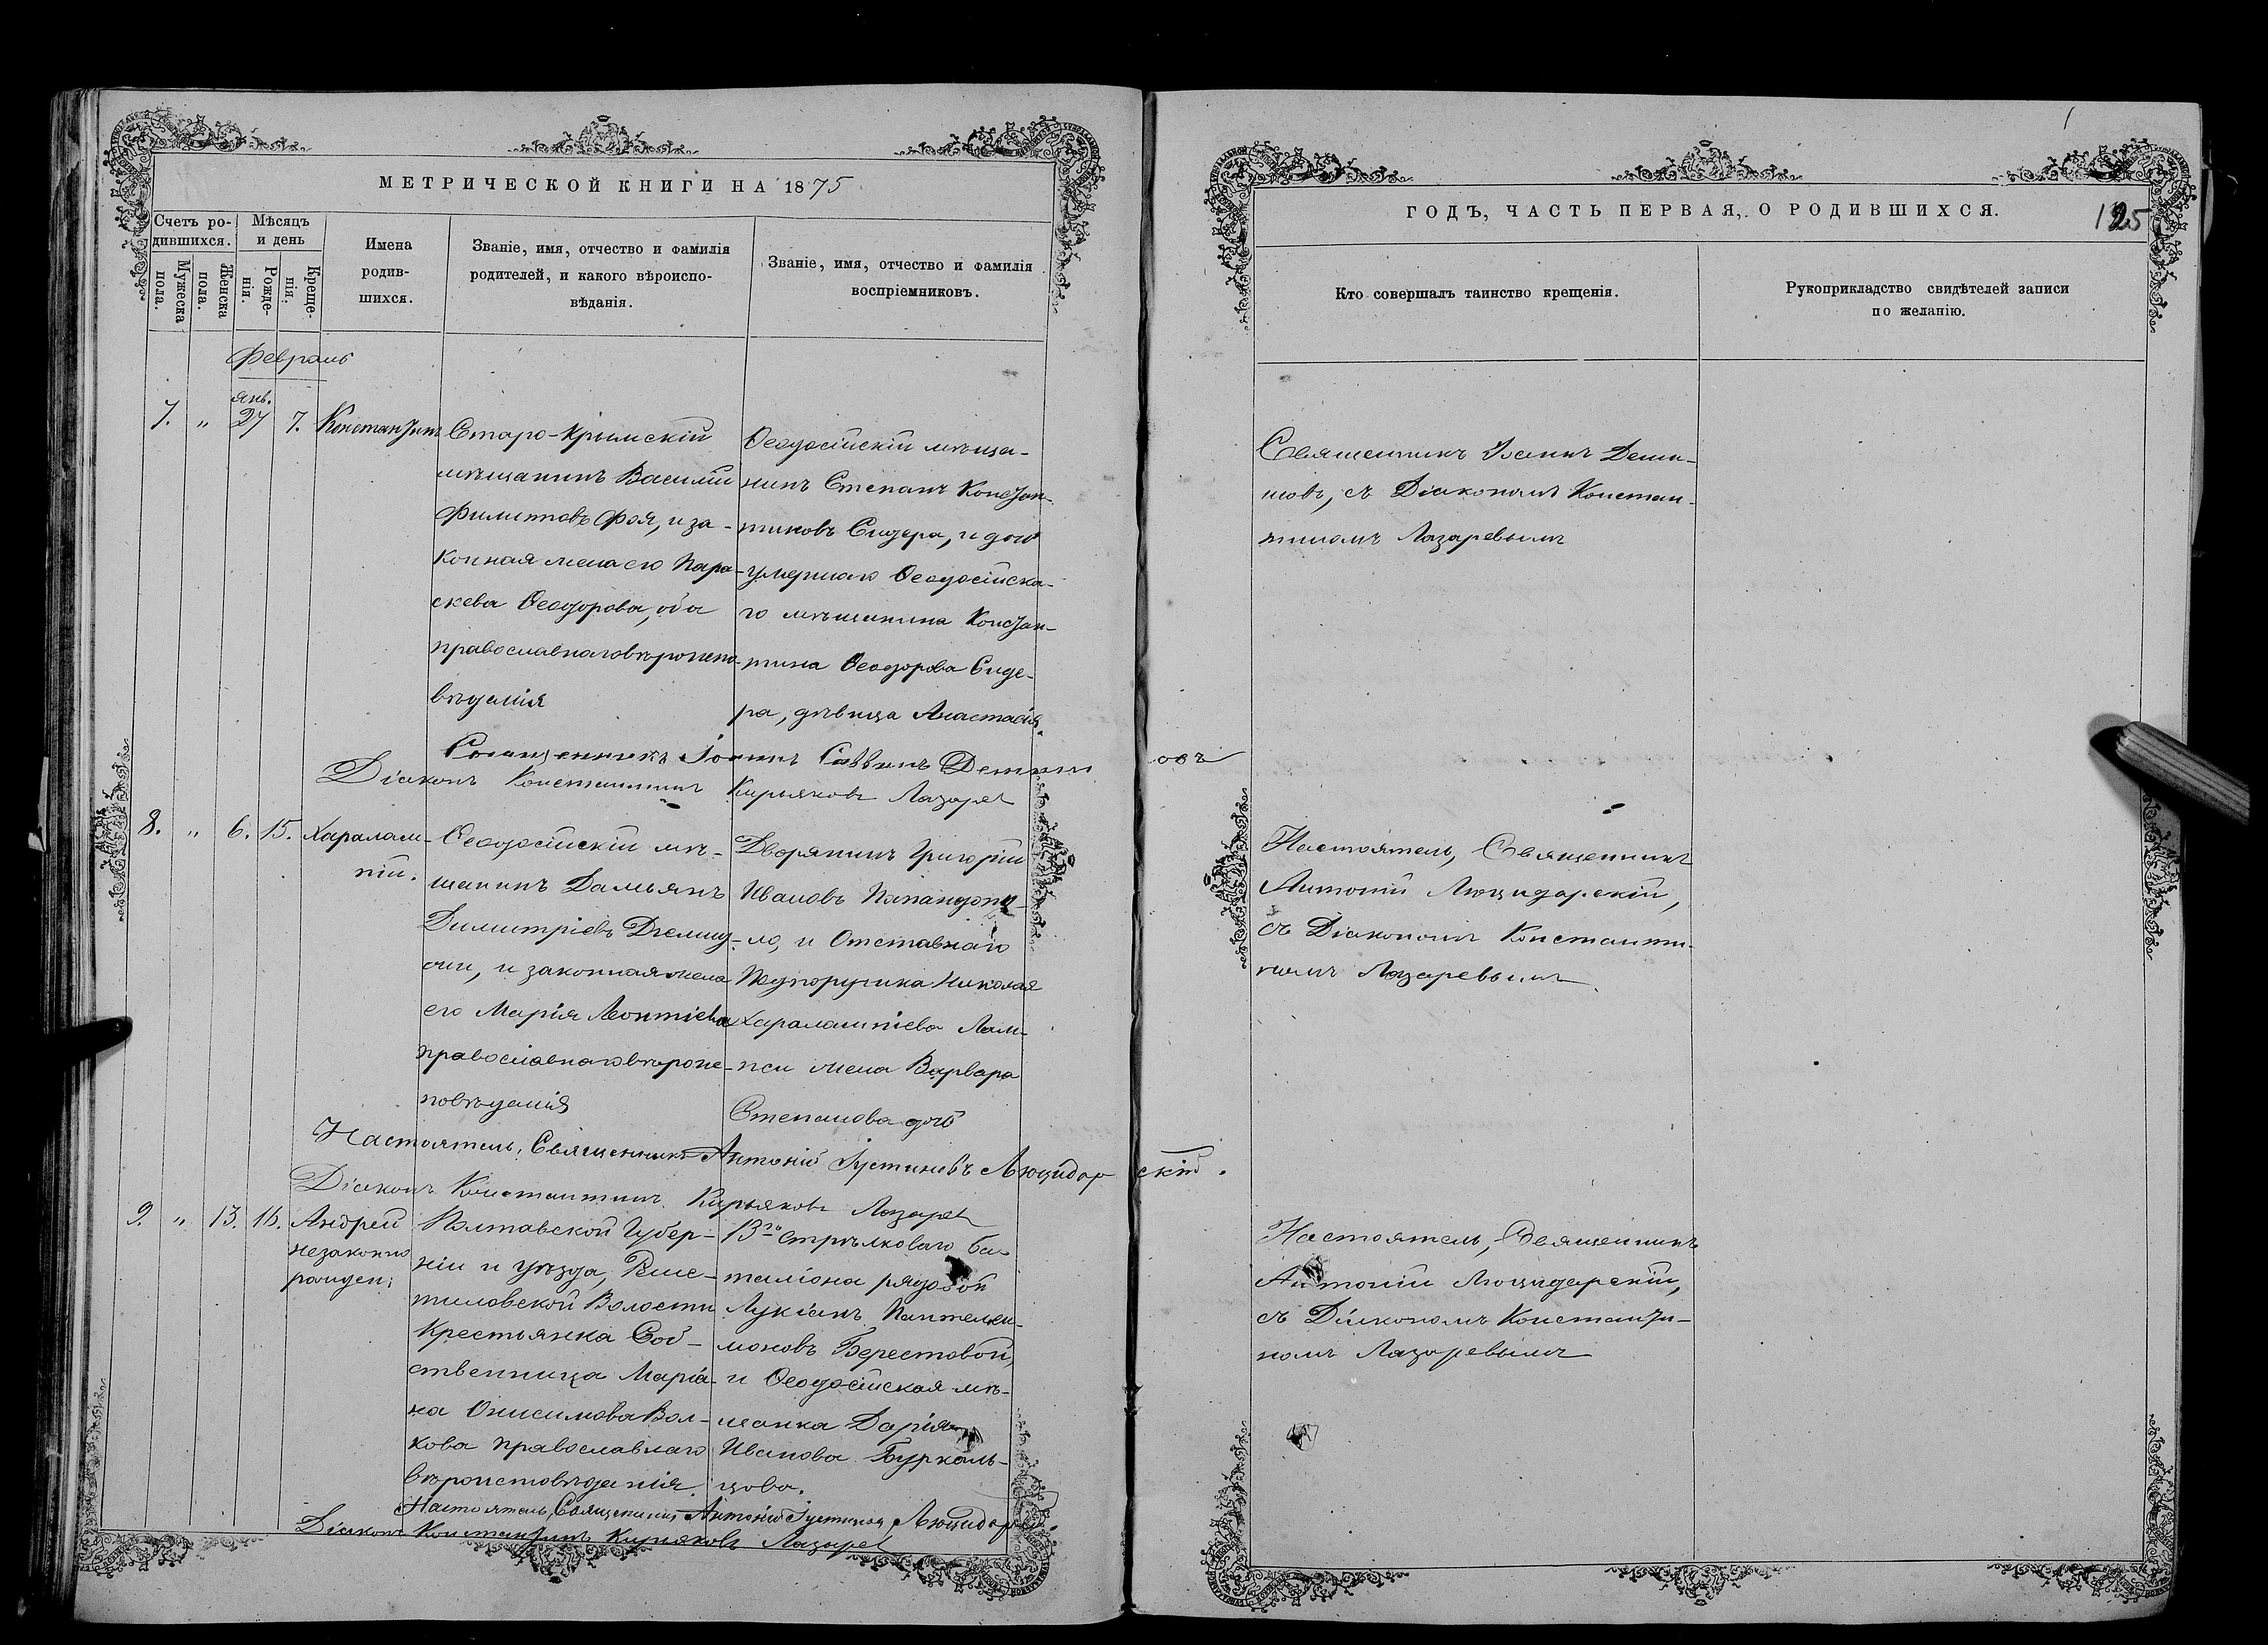 МЕТРИЧЕСКОЙ КНИГИ НА 1875
Счетъ ро-
дившихся.
Мѣсяцъ
и день
Мужеска
пола.
Женска
пола.
Рожде-
нія.
Креще-
нія.
Имена
родив-
шихся.
Званіе, имя, отчество и фамилія
родителей, и какого вѣроиспо-
вѣданія.
Званіе, имя, отчество и фамилія
воспріемниковъ.
Февраль
7. " янв. 27 7. Константинъ
Старо-Крымскій
мѣщанинъ Василій
Филиповъ Фоя, и за-
конная жена его Пара-
скева Ѳеодорова, оба
православнаго вѣроиспо-
вѣданія
Ѳеодосійскій мѣща-
нинъ Степанъ Констан-
тиновъ Сидера, и дочь
умершаго Ѳеодосійска-
го мѣщанина Констан-
тина Ѳеодорова Сиде-
ра, дѣвица Анастасія.
Священникъ Іоаннъ Саввинъ Демановъ
Діаконъ Константинъ Кирьяковъ Лазарев
8. " 6. 15. Харалам-
пій.
Ѳеодосійскій мѣ-
щанинъ Дамьянъ
Димитріевъ
и законная жена
его Марія Леонтіева
православнаго вѣроис-
повѣданія
Дворянинъ Григорій
Ивановъ Папандопу-
ло, и Отставнаго
Подпоручика Николая
Харалампіева Лам-
пси жена Варвара
Степанова дочь
Настоятель, Священникъ Антоній Іустиновъ Люцидарскій.
Діаконъ Константинъ Кирьяковъ Лазарев
9. " 13. 16. Андрей
незаконно
рожден:
Полтавской Губер-
ніи и уѣзда, Реше-
тиловской Волости
Крестьянка Соб-
ственница Маріа-
на Онисимова Вол-
кова православнаго
вѣроисповѣданія.
13го Стрѣлковаго ба-
таліона рядовой
Лукіанъ Пантелеи-
моновъ Берестовой,
и Ѳеодосійская мѣ-
щанка Дарія
Иванова Буркаль-
цова.
Настоятель, Священникъ Антоній Іустинов Люцидарс.
Діаконъ Константинъ Кирьяковъ Лазарев
ГОДЪ, ЧАСТЬ ПЕРВАЯ, О РОДИВШИХСЯ.
125
Кто совершалъ таинство крещенія.
Рукоприкладство свидѣтелей записи
по желанію.
Священникъ Іоаннъ Дема-
новъ, съ Діакономъ Констан-
тиномъ Лазаревымъ
Настоятель, Священникъ
Антоній Люцидарскій,
съ Діакономъ Константи-
номъ Лазаревымъ.
Настоятель, Священникъ
Антоній Люцидарскій,
съ Діакономъ Константи-
номъ Лазаревымъ